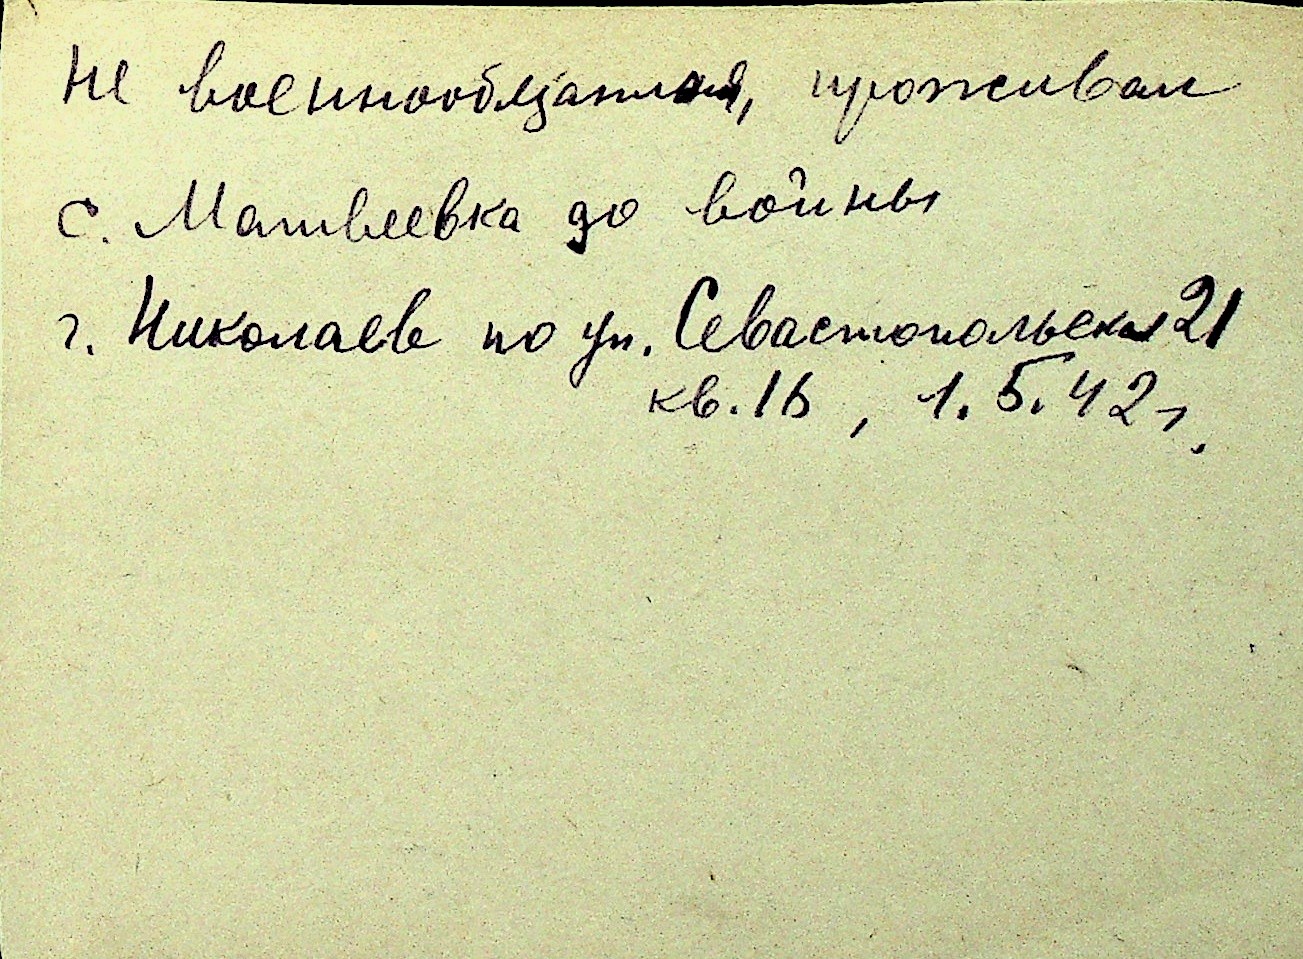 не военнообязанная, проживал
с. Матвеевка до войны
г. Николаев по ул. Севастопольская 21
кв. 16, 1.5.42 г.